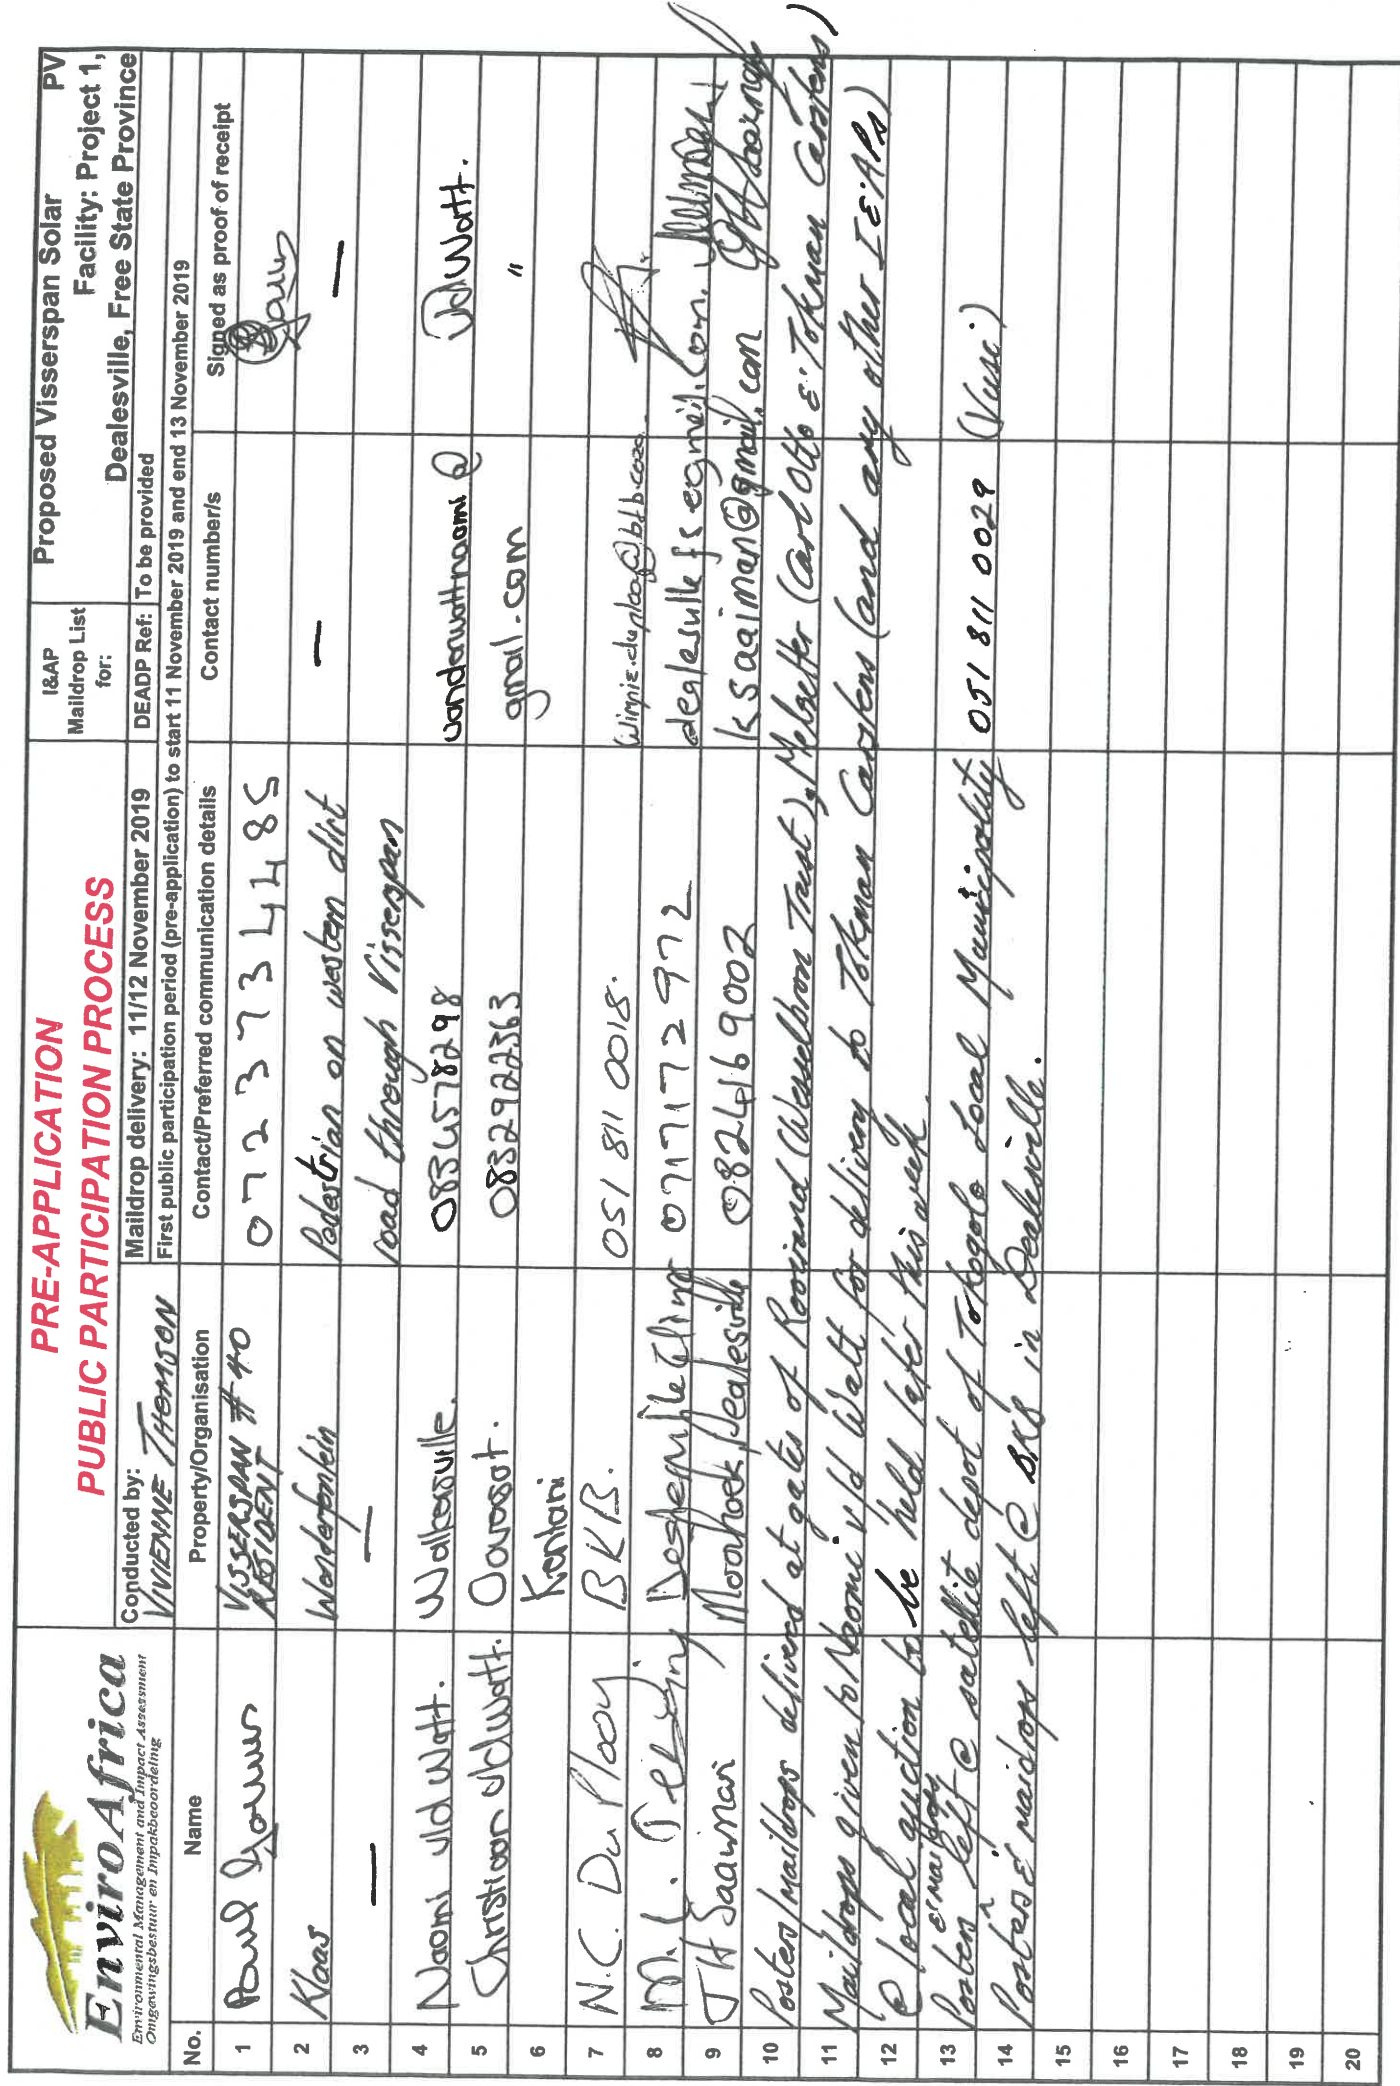 EnviroAfrica
Environmental Management and Impact Assessment
Omgewingsbestuur en Impakbeoordeling
PRE-APPLICATION
PUBLIC PARTICIPATION PROCESS
I&AP
Maildrop List
for:
Proposed Visserspan Solar PV
Facility: Project 1,
Dealesville, Free State Province
Conducted by:
VIVIENNE THOMSON
Maildrop delivery: 11/12 November 2019
DEADP Ref: To be provided
First public participation period (pre-application) to start 11 November 2019 and end 13 November 2019
No. Name Property/Organisation Contact/Preferred communication details Contact number/s Signed as proof of receipt
1 Paul VISSERSPAN #40 RESIDENT 0723734485
2 Klaas Wonderfontein Pedestrian on western dirt — —
3 — — road through Visserspan
4 Naomi vld Watt. Walkersville. 0834578298 vanderwattnaomi@ vd Watt.
5 Christiaan vldWatt. Oorsprong. 0832922363 gmail.com "
6 Kentani
7 N.C. Du Plooy BKB. 051 811 0018.
8 M.L. 0717172972
9 JH Saaiman Moorhoek/Dealesville 0824169002 ksaaiman@gmail.com
10 Posters/maildrops delivered at gates of Rooirand (Wesselbron Trust), Melsetter (Carl Otto & Tokman Carstens)
11 Maildrops given to Naomi v/d Watt for delivery to Tokman Carstens (and any other I&APs)
12 @ local auction to be held later this week.
13 Posters & maildrops left @ satellite depot of Tokogolo Local Municipality 051 811 0029 (Vusi)
14 Posters & maidrops left @ BKB in Dealesville.
15
16
17
18
19
20